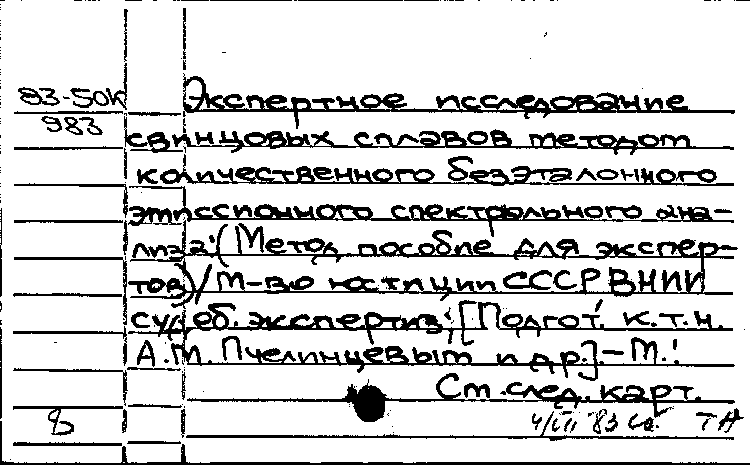 83-50К Экспертное исследование
983 свинцовых сплавов методом
количественного безэталонного
эмиссионного спектрального ана-
лиза: (Метод. пособие для экспер-
тов) / М-во юстиции СССР ВНИИ
судеб. экспертиз; [Подгот. к.т.н.
А.М. Пчелинцевым и др.].-М.:
См. след. карт.
8 ТН